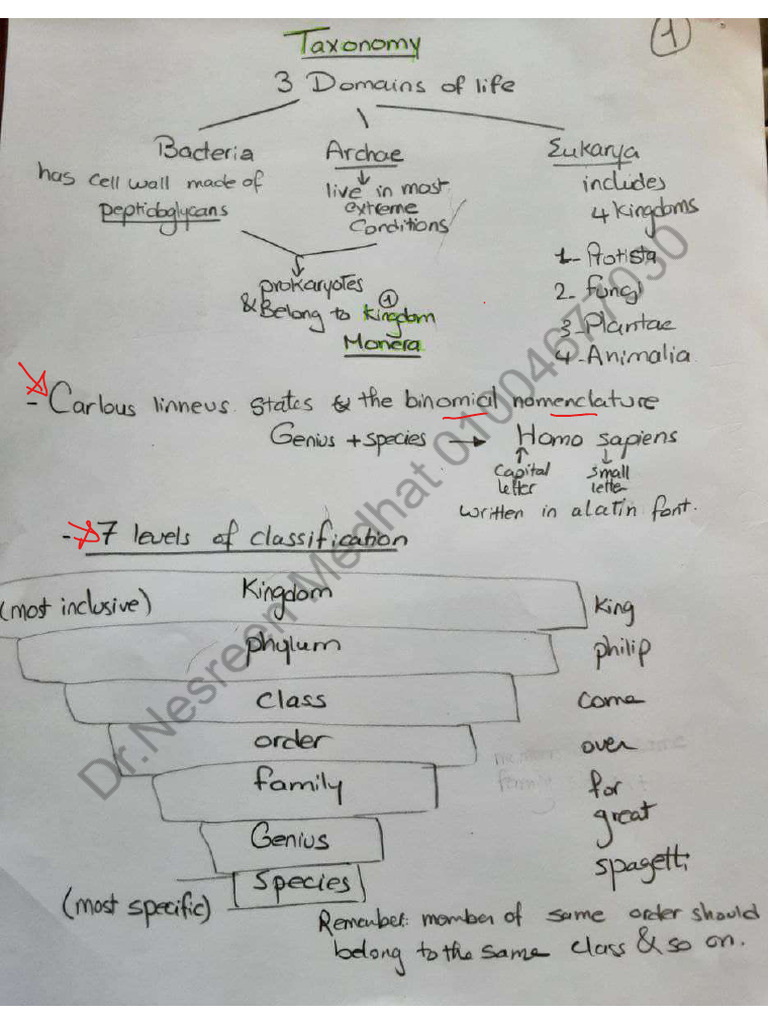 (1)
Taxonomy
3 Domains of life
Bacteria
has cell wall made of
peptidoglycans
Archae
live in most
extreme
Conditions
Eukarya
includes
4 kingdoms
1- Protista
2- Fungi
3- Plantae
4- Animalia
prokaryotes
& Belong to kingdom
①
Monera
- Carlous linneus states & the binomial nomenclature
Genius + species → Homo sapiens
Capital
letter
small
letter
written in a latin font.
- 7 levels of classification
(most inclusive) Kingdom King
phylum philip
class come
order over
family for
Genius great
species spagetti
(most specific)
Remember: member of same order should
belong to the same class & so on.
Dr.Nesreen Medhat 01004677030